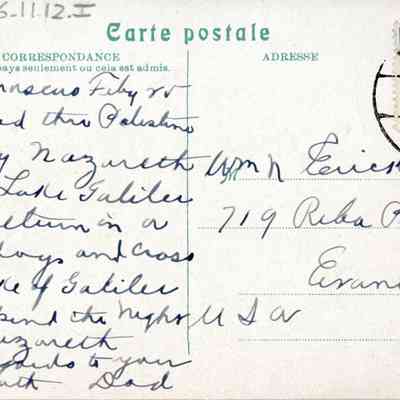 6-11.12.I
Carte postale
CORRESPONDANCE
pays seulement ou cela est admis.
ADRESSE
mascus Feby 25
thru Palestine
Nazareth
Lake Galilee
eturn in a
days and Cross
ke of Galilee
the Night
azareth
to your
Dad
Wm N Erick
719 Reba P
Evan
U S A